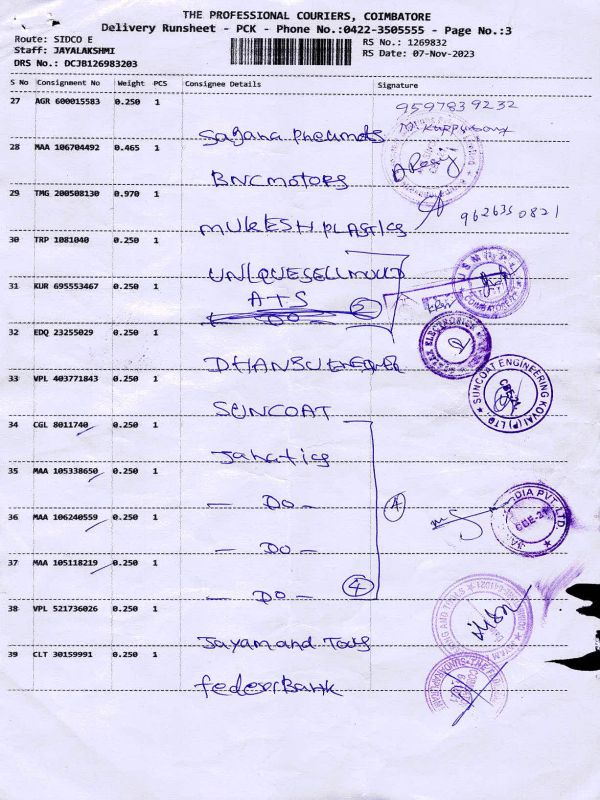 THE PROFESSIONAL COURIERS, COIMBATORE
Delivery Runsheet - PCK - Phone No.:0422-3505555 - Page No.:3
Route: SIDCO E
Staff: JAYALAKSHMI
DRS No.: DCJB126983203
RS No.: 1269832
RS Date: 07-Nov-2023
S No Consignment No Weight PCS Consignee Details Signature
27 AGR 600015583 0.250 1
9597839232
Sagana Pneumats
28 MAA 106704492 0.465 1
BNC MOTORS
29 TMG 200508130 0.970 1
9626350821
MUKESH PLASTICS
30 TRP 1081040 0.250 1
31 KUR 695553467 0.250 1
ATS
DO
32 EDQ 23255029 0.250 1
33 VPL 403771843 0.250 1
SUNCOAT ENGINEERING KOVAI (P) LTD
SUNCOAT
34 CGL 8011740 0.250 1
Janatics
35 MAA 105338650 0.250 1
- DO -
4
36 MAA 106240559 0.250 1
- DO -
37 MAA 105118219 0.250 1
- DO -
4
38 VPL 521736026 0.250 1
Jayam and Tools
39 CLT 30159991 0.250 1
federer Bank